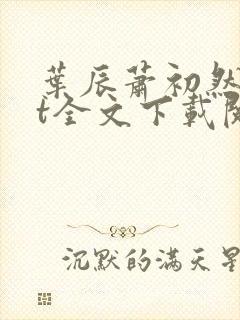 葉辰蕭初然
t全文下載閱
沉默的满天星